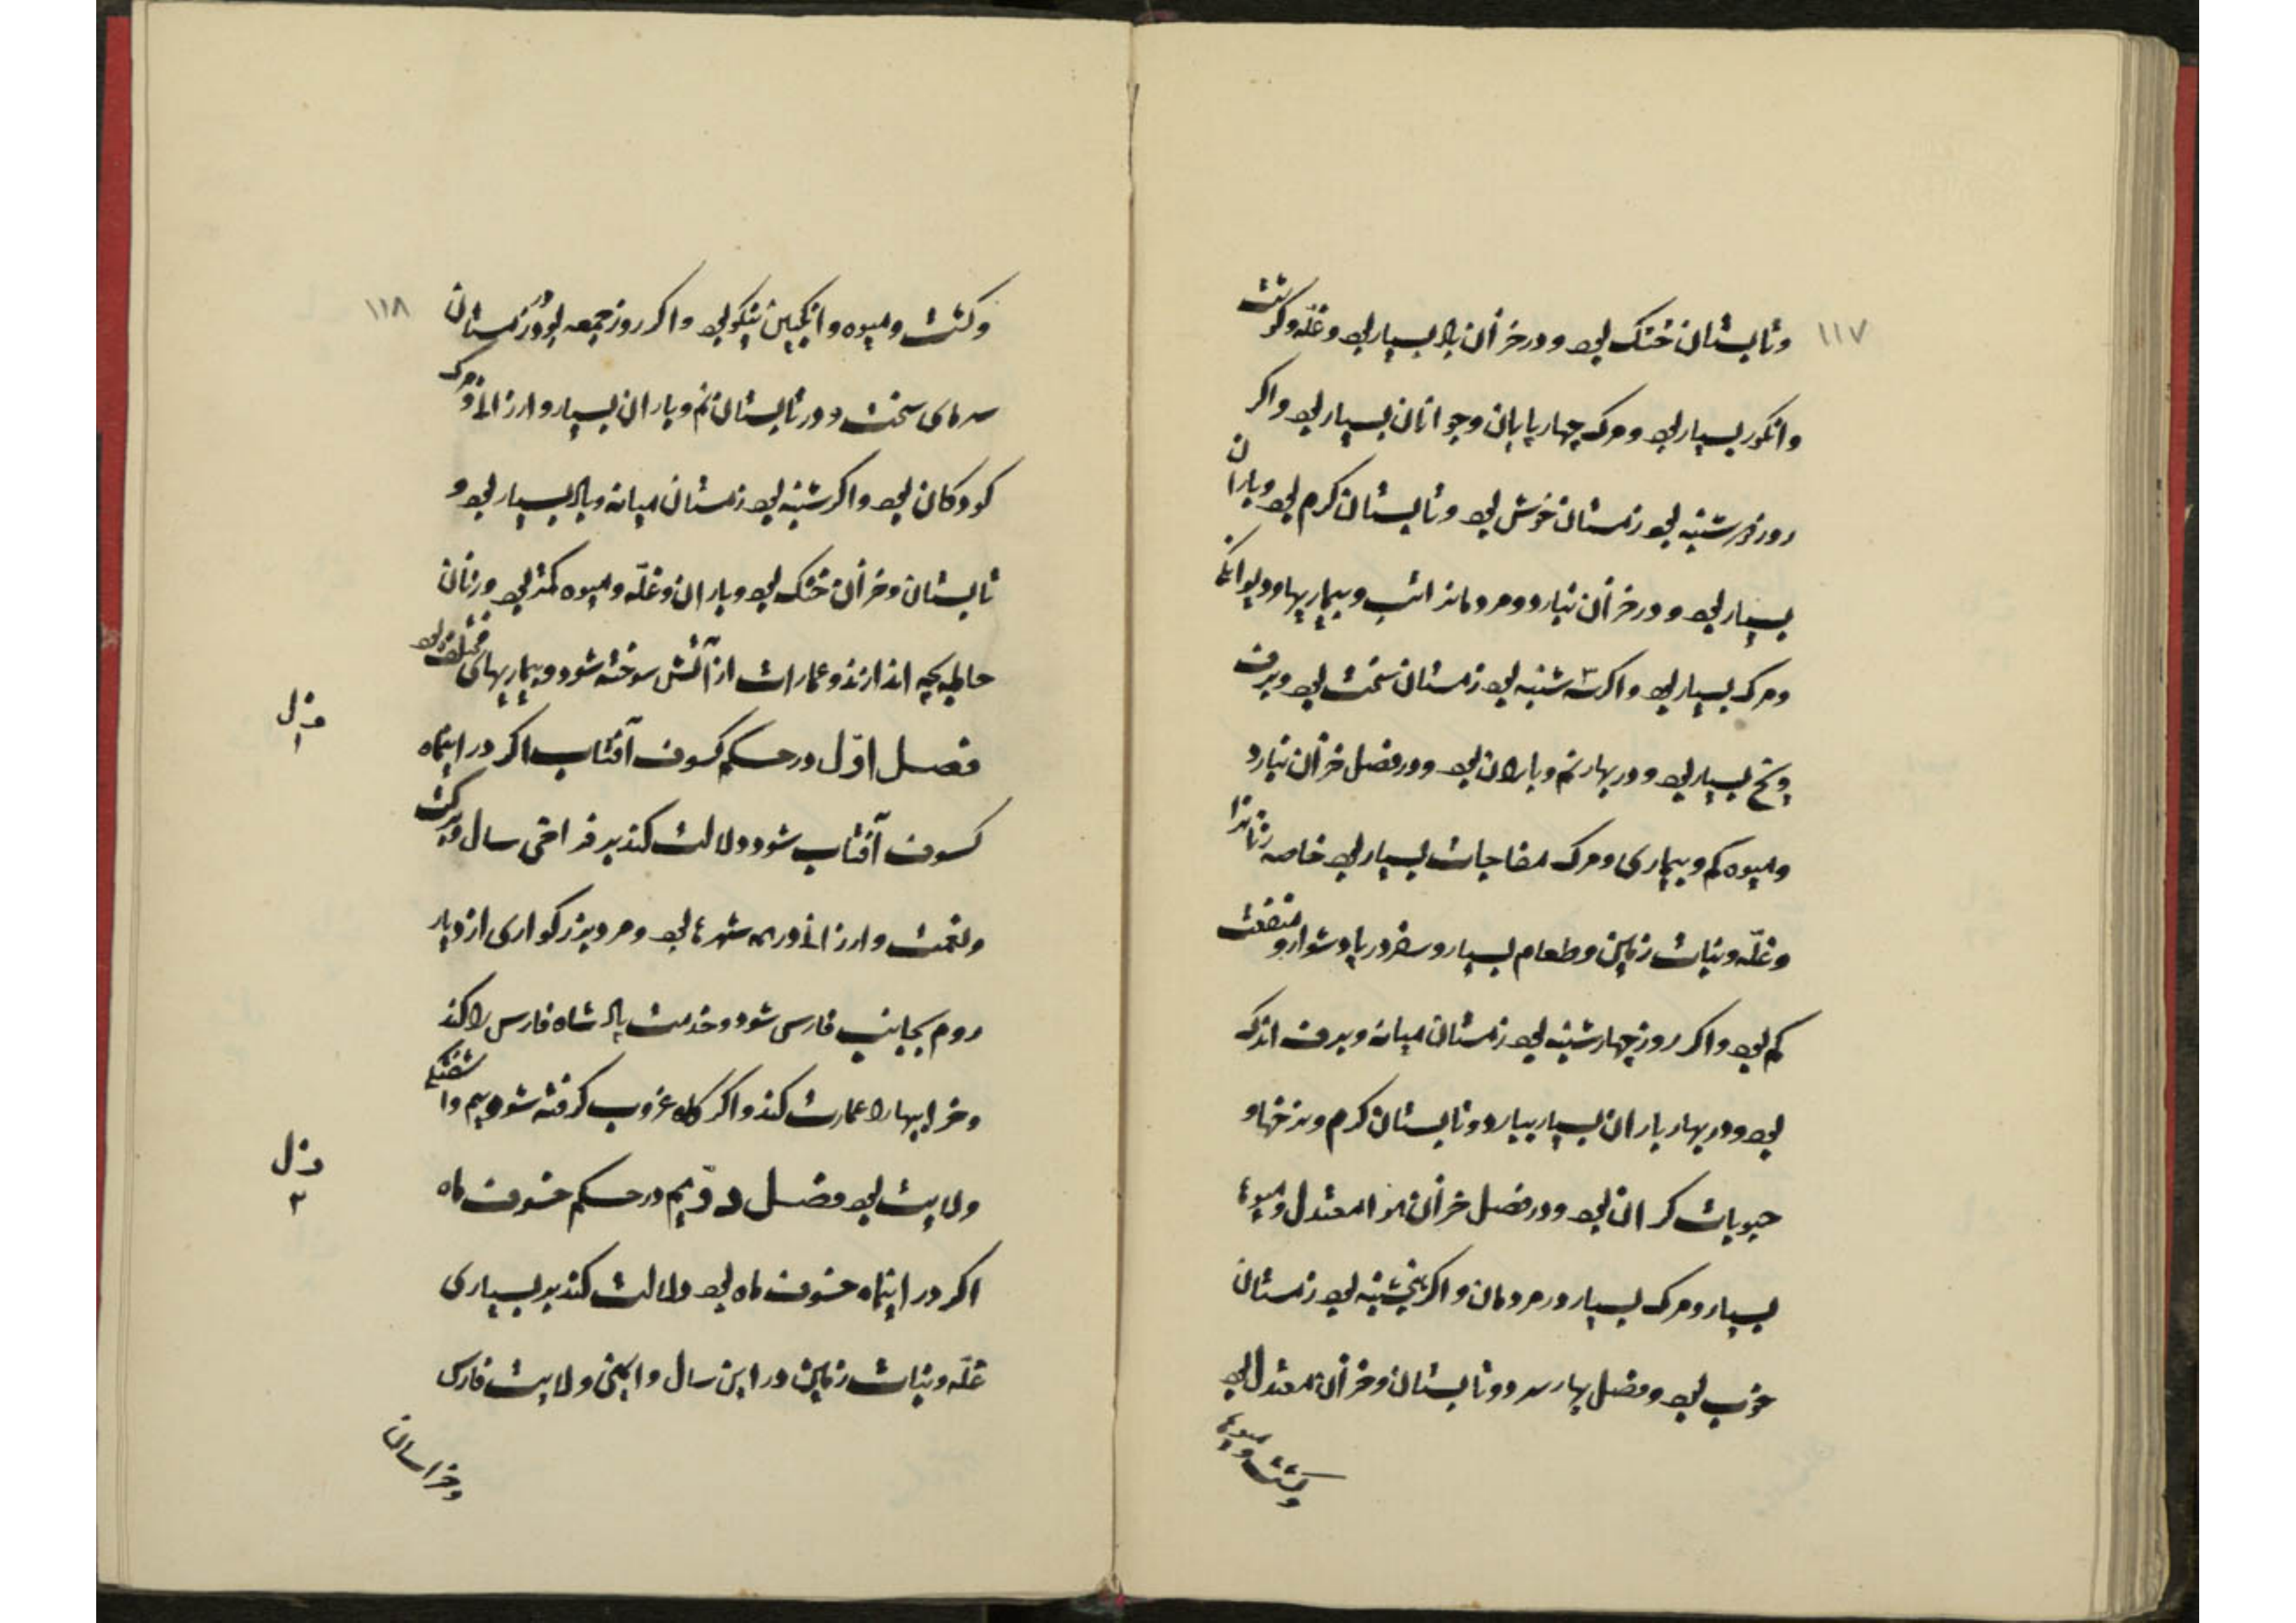 ۱۱۷
وتابستان خشک بود و در خزان باد بسیار بود وغلّه وکشت
وانکور بسیار بود ومرک چهارپایان وجوانان بسیار بود واکر
روز دوشنبه بود زمستان خوش بود وتابستان کرم بود وباران
بسیار بود و در خزان نبارد ومردمانرا تب وبیماریها ودیوانکی
ومرک بسیار بود واکر سه شنبه بود زمستان سخت بود وبرف
ویخ بسیار بود ودر بهار نم وباران بود ودر فصل خزان نبارد
ومیوه کم وبیماری ومرک مفاجات بسیار بود خاصه زنانرا
وغلّه ونبات زمین وطعام بسیار وسفر دریا دشوار ومنفعت
کم بود واکر روز چهارشنبه بود زمستان میانه وبرف اندک
بود ودر بهار باران بسیار ببارد وتابستان کرم ونرخها و
حبوبات کران بود ودر فصل خزان هوا معتدل ومیوها
بسیار ومرک بسیار در مردمان واکر پنجشنبه بود زمستان
خوب بود وفصل بهار سرد وتابستان وخزان معتدل بود
وکشت ومیوها
۱۱۸
وکشت ومیوه وانکبین نیکو بود واکر روز جمعه بود در زمستان
سرمای سخت ودر تابستان نم وباران بسیار وارزانی ومرک
کودکان بود واکر شنبه بود زمستان میانه وباد بسیار بود و
تابستان وخزان خشک بود وباران وغلّه ومیوه کمتر بود وزنان
حامله بچه اندازند وعمارات از آتش سوخته شود وبیماریهای مختلف بود
فصل اوّل در حکم کسوف آفتاب اکر در اینماه
فصل ۱
کسوف آفتاب شود دلالت کند بر فراخی سال وبرکت
ونعمت وارزانی در همه شهرها بود ومرد بزرکواری از دیار
روم بجانب فارس شود وخدمت پادشاه فارس را کند
وخرابیها را عمارت کند واکر کاه غروب کرفته شود بیم وآشفتکی
ولایت بود فصل دوّیم در حکم خسوف ماه
فصل ۲
اکر در اینماه خسوف ماه بود دلالت کند بر بسیاری
غلّه ونبات زمین در این سال وایمنی ولایت فارس
وخراسان